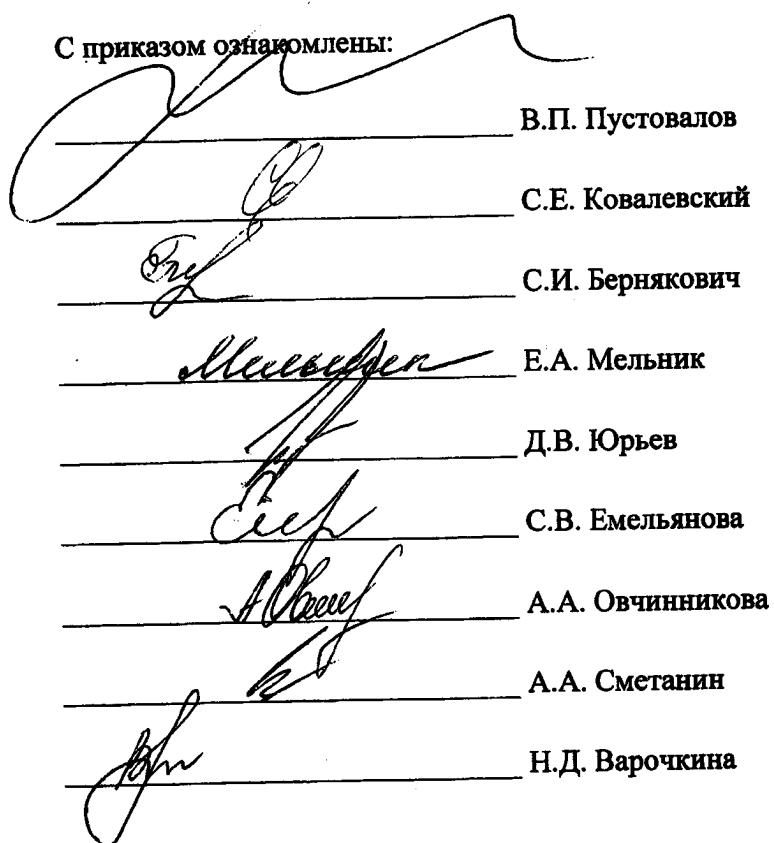 С приказом ознакомлены:
В.П. Пустовалов
С.Е. Ковалевский
С.И. Бернякович
Е.А. Мельник
Д.В. Юрьев
С.В. Емельянова
А.А. Овчинникова
А.А. Сметанин
Н.Д. Варочкина